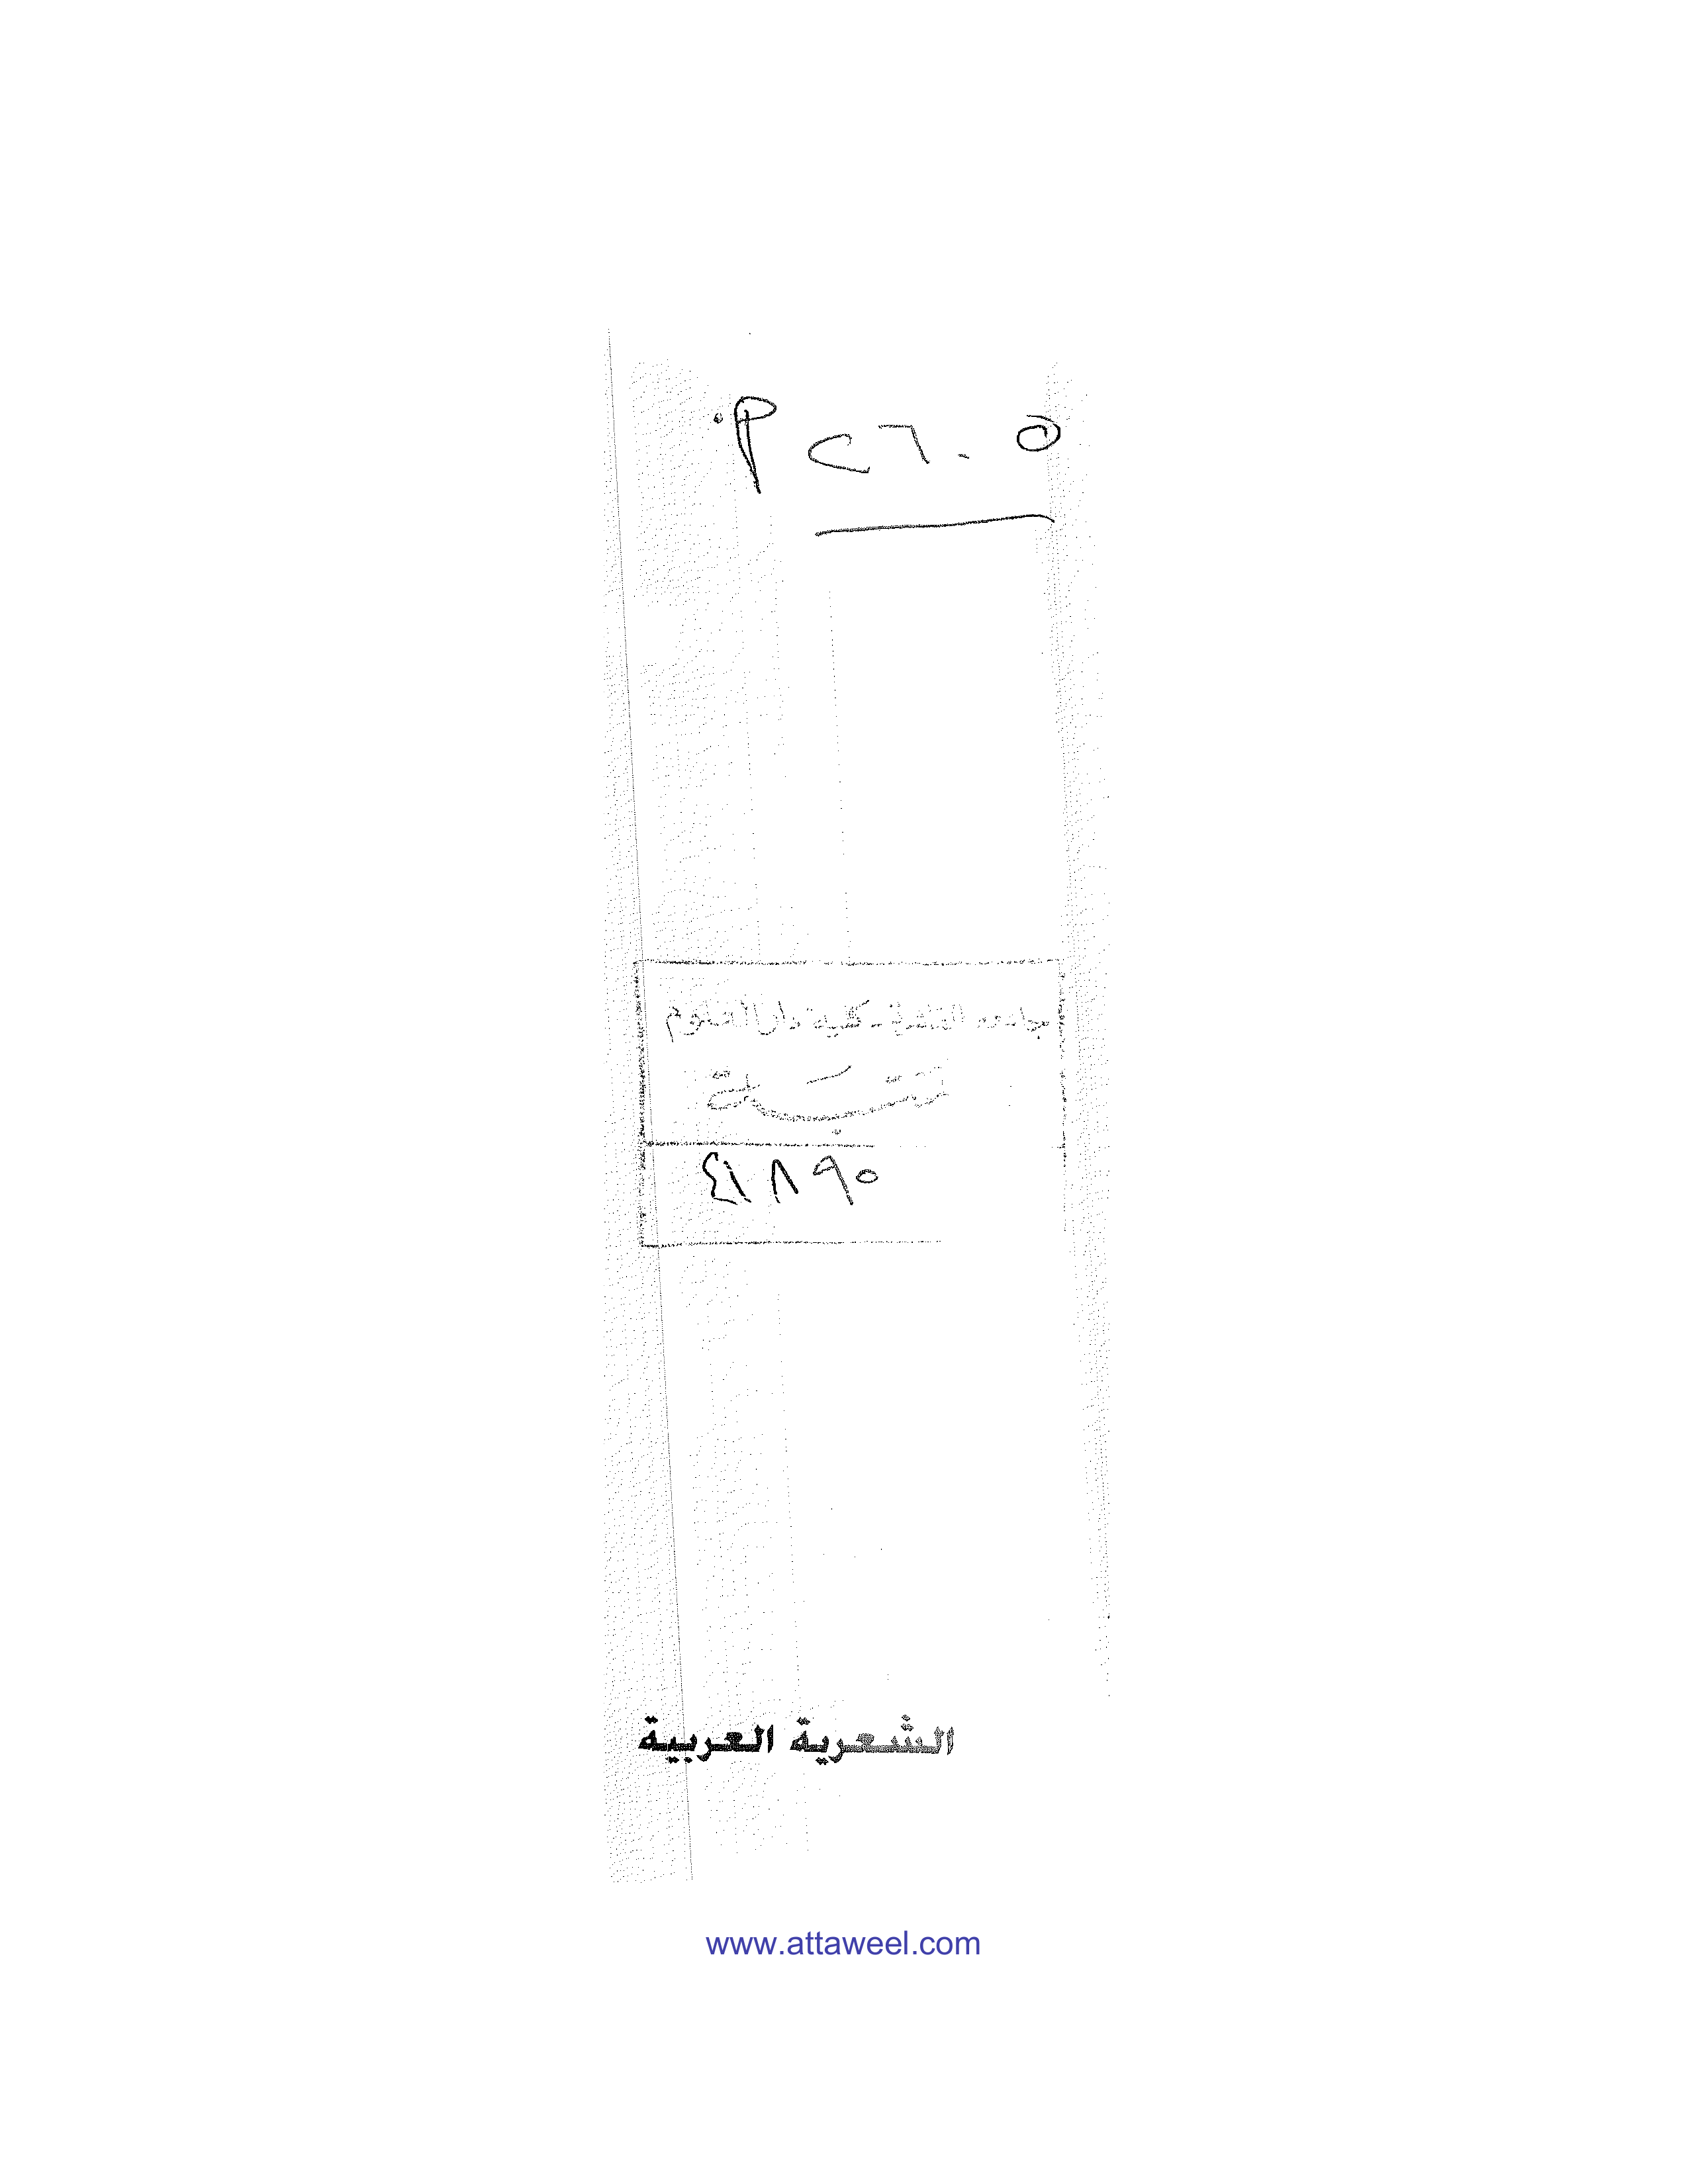 ٢٦٠٥
جامعة القاهرة - كلية دار العلوم
٤١٨٩٥
الشعرية العربية
www.attaweel.com